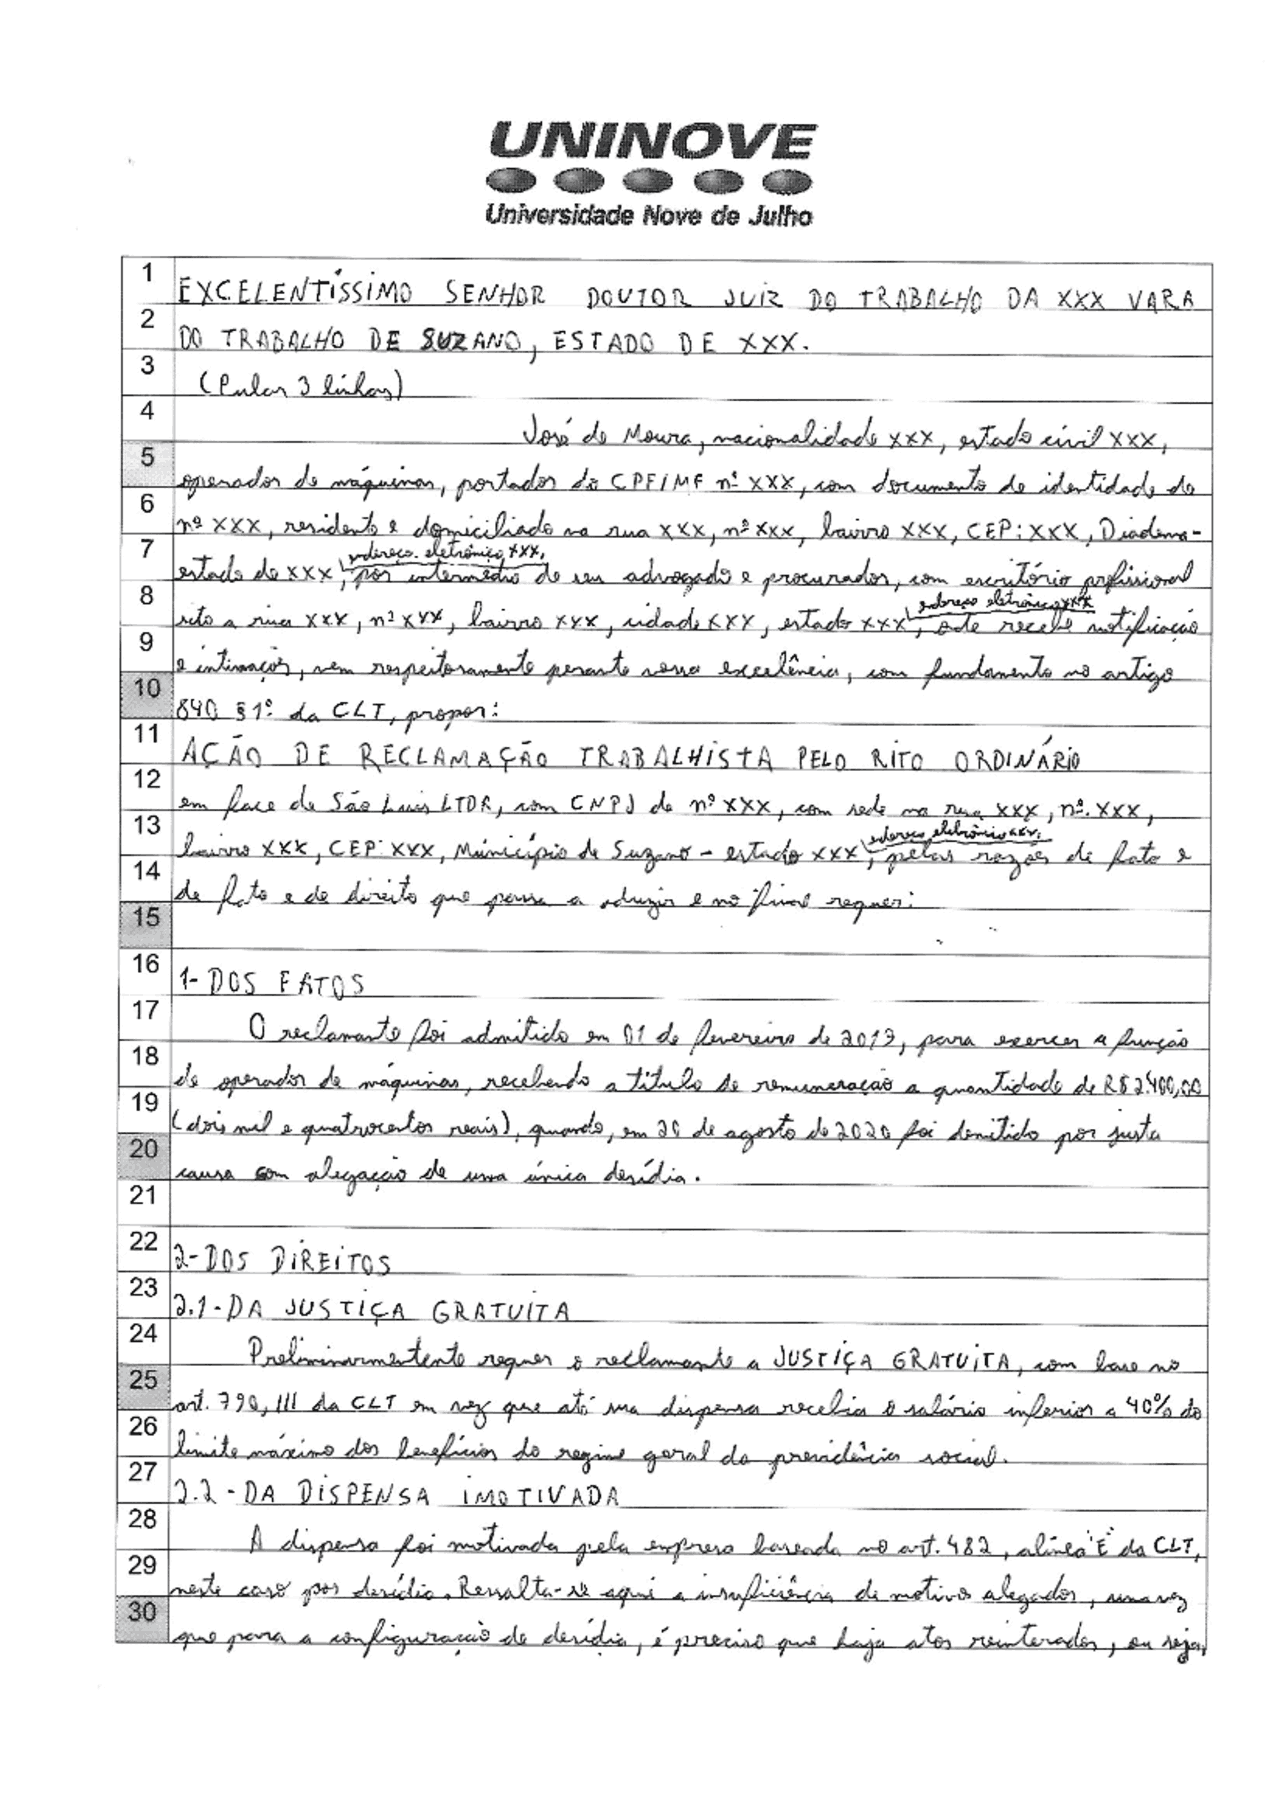 UNINOVE
Universidade Nove de Julho
1 EXCELENTÍSSIMO SENHOR DOUTOR JUIZ DO TRABALHO DA XXX VARA
2 DO TRABALHO DE SUZANO, ESTADO DE XXX.
3 (Pular 3 linhas)
4 José de Moura, nacionalidade XXX, estado civil XXX,
5 operador de máquinas, portador do CPF/MF nº XXX, com documento de identidade de
6 nº XXX, residente e domiciliado na rua XXX, nº XXX, bairro XXX, CEP: XXX, Diadema-
endereço eletrônico XXX,
7 estado de XXX, por intermédio de seu advogado e procurador, com escritório profissional
endereço eletrônico XXX
8 sito a rua XXX, nº XXX, bairro XXX, cidade XXX, estado XXX, onde recebe notificação
9 e intimações, vem respeitosamente perante vossa excelência, com fundamento no artigo
10 840 §1º da CLT, propor:
11 AÇÃO DE RECLAMAÇÃO TRABALHISTA PELO RITO ORDINÁRIO
12 em face de São Luis LTDA, com CNPJ de nº XXX, com sede na rua XXX, nº. XXX,
endereço eletrônico XXX,
13 bairro XXX, CEP: XXX, Município de Suzano - estado XXX, pelas razões de fato e
14 de fato e de direito que passa a aduzir e no final requer:
15
16 1- DOS FATOS
17 O reclamante foi admitido em 01 de fevereiro de 2013, para exercer a função
18 de operador de máquinas, recebendo a título de remuneração a quantidade de R$ 2.400,00
19 (dois mil e quatrocentos reais), quando, em 20 de agosto de 2020 foi demitido por justa
20 causa com alegação de uma única desídia.
21
22 2- DOS DIREITOS
23 2.1- DA JUSTIÇA GRATUITA
24 Preliminarmentente requer o reclamante a JUSTIÇA GRATUITA, com base no
25 art. 790, III da CLT em vez que até sua dispensa recebia o salário inferior a 40% do
26 limite máximo dos benefícios do regime geral da previdência social.
27 2.2- DA DISPENSA IMOTIVADA
28 A dispensa foi motivada pela empresa baseada no art. 482, alínea "E" da CLT,
29 neste caso por desídia. Ressalta-se aqui a insuficiência de motivos alegados, uma vez
30 que para a configuração de desídia, é preciso que haja atos reinterados, ou seja,